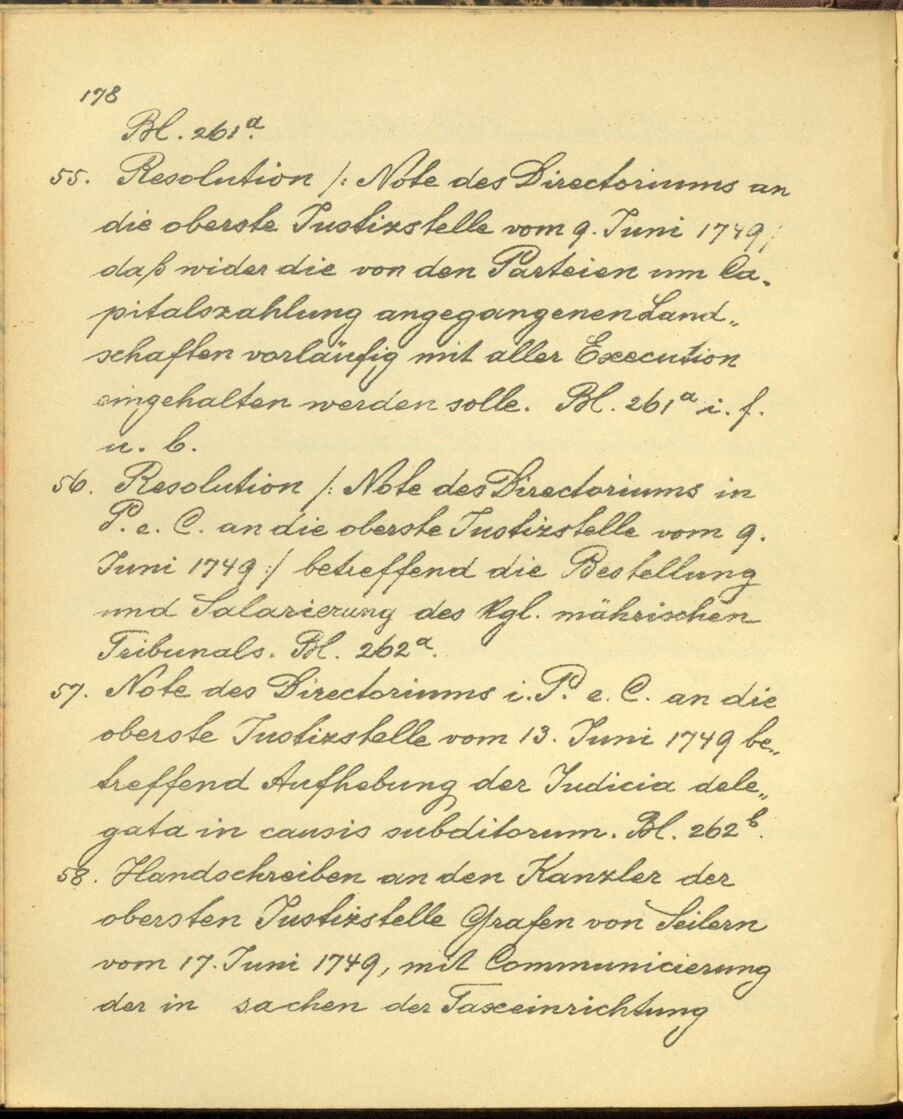 178
Bl. 261a.
55. Resolution /: Note des Directoriums an
die oberste Justizstelle vom 9. Juni 1749/
daß wider die von den Parteien um Ca-
pitalszahlung angegangenen Land„
schaften vorläufig mit aller Execution
eingehalten werden solle. Bl. 261a i. f.
u. b.
56. Resolution /: Note des Directoriums in
P. e. C. an die oberste Justizstelle vom 9.
Juni 1749 :/ betreffend die Bestellung
und Salarierung des kgl. mährischen
Tribunals. Bl. 262a.
57. Note des Directoriums i. P. e. C. an die
oberste Justizstelle vom 13. Juni 1749 be„
treffend Aufhebung der Judicia dele„
gata in causis subditorum. Bl. 262b.
58. Handschreiben an den Kanzler der
obersten Justizstelle Grafen von Seilern
vom 17. Juni 1749, mit Communicierung
der in sachen der Taxeinrichtung